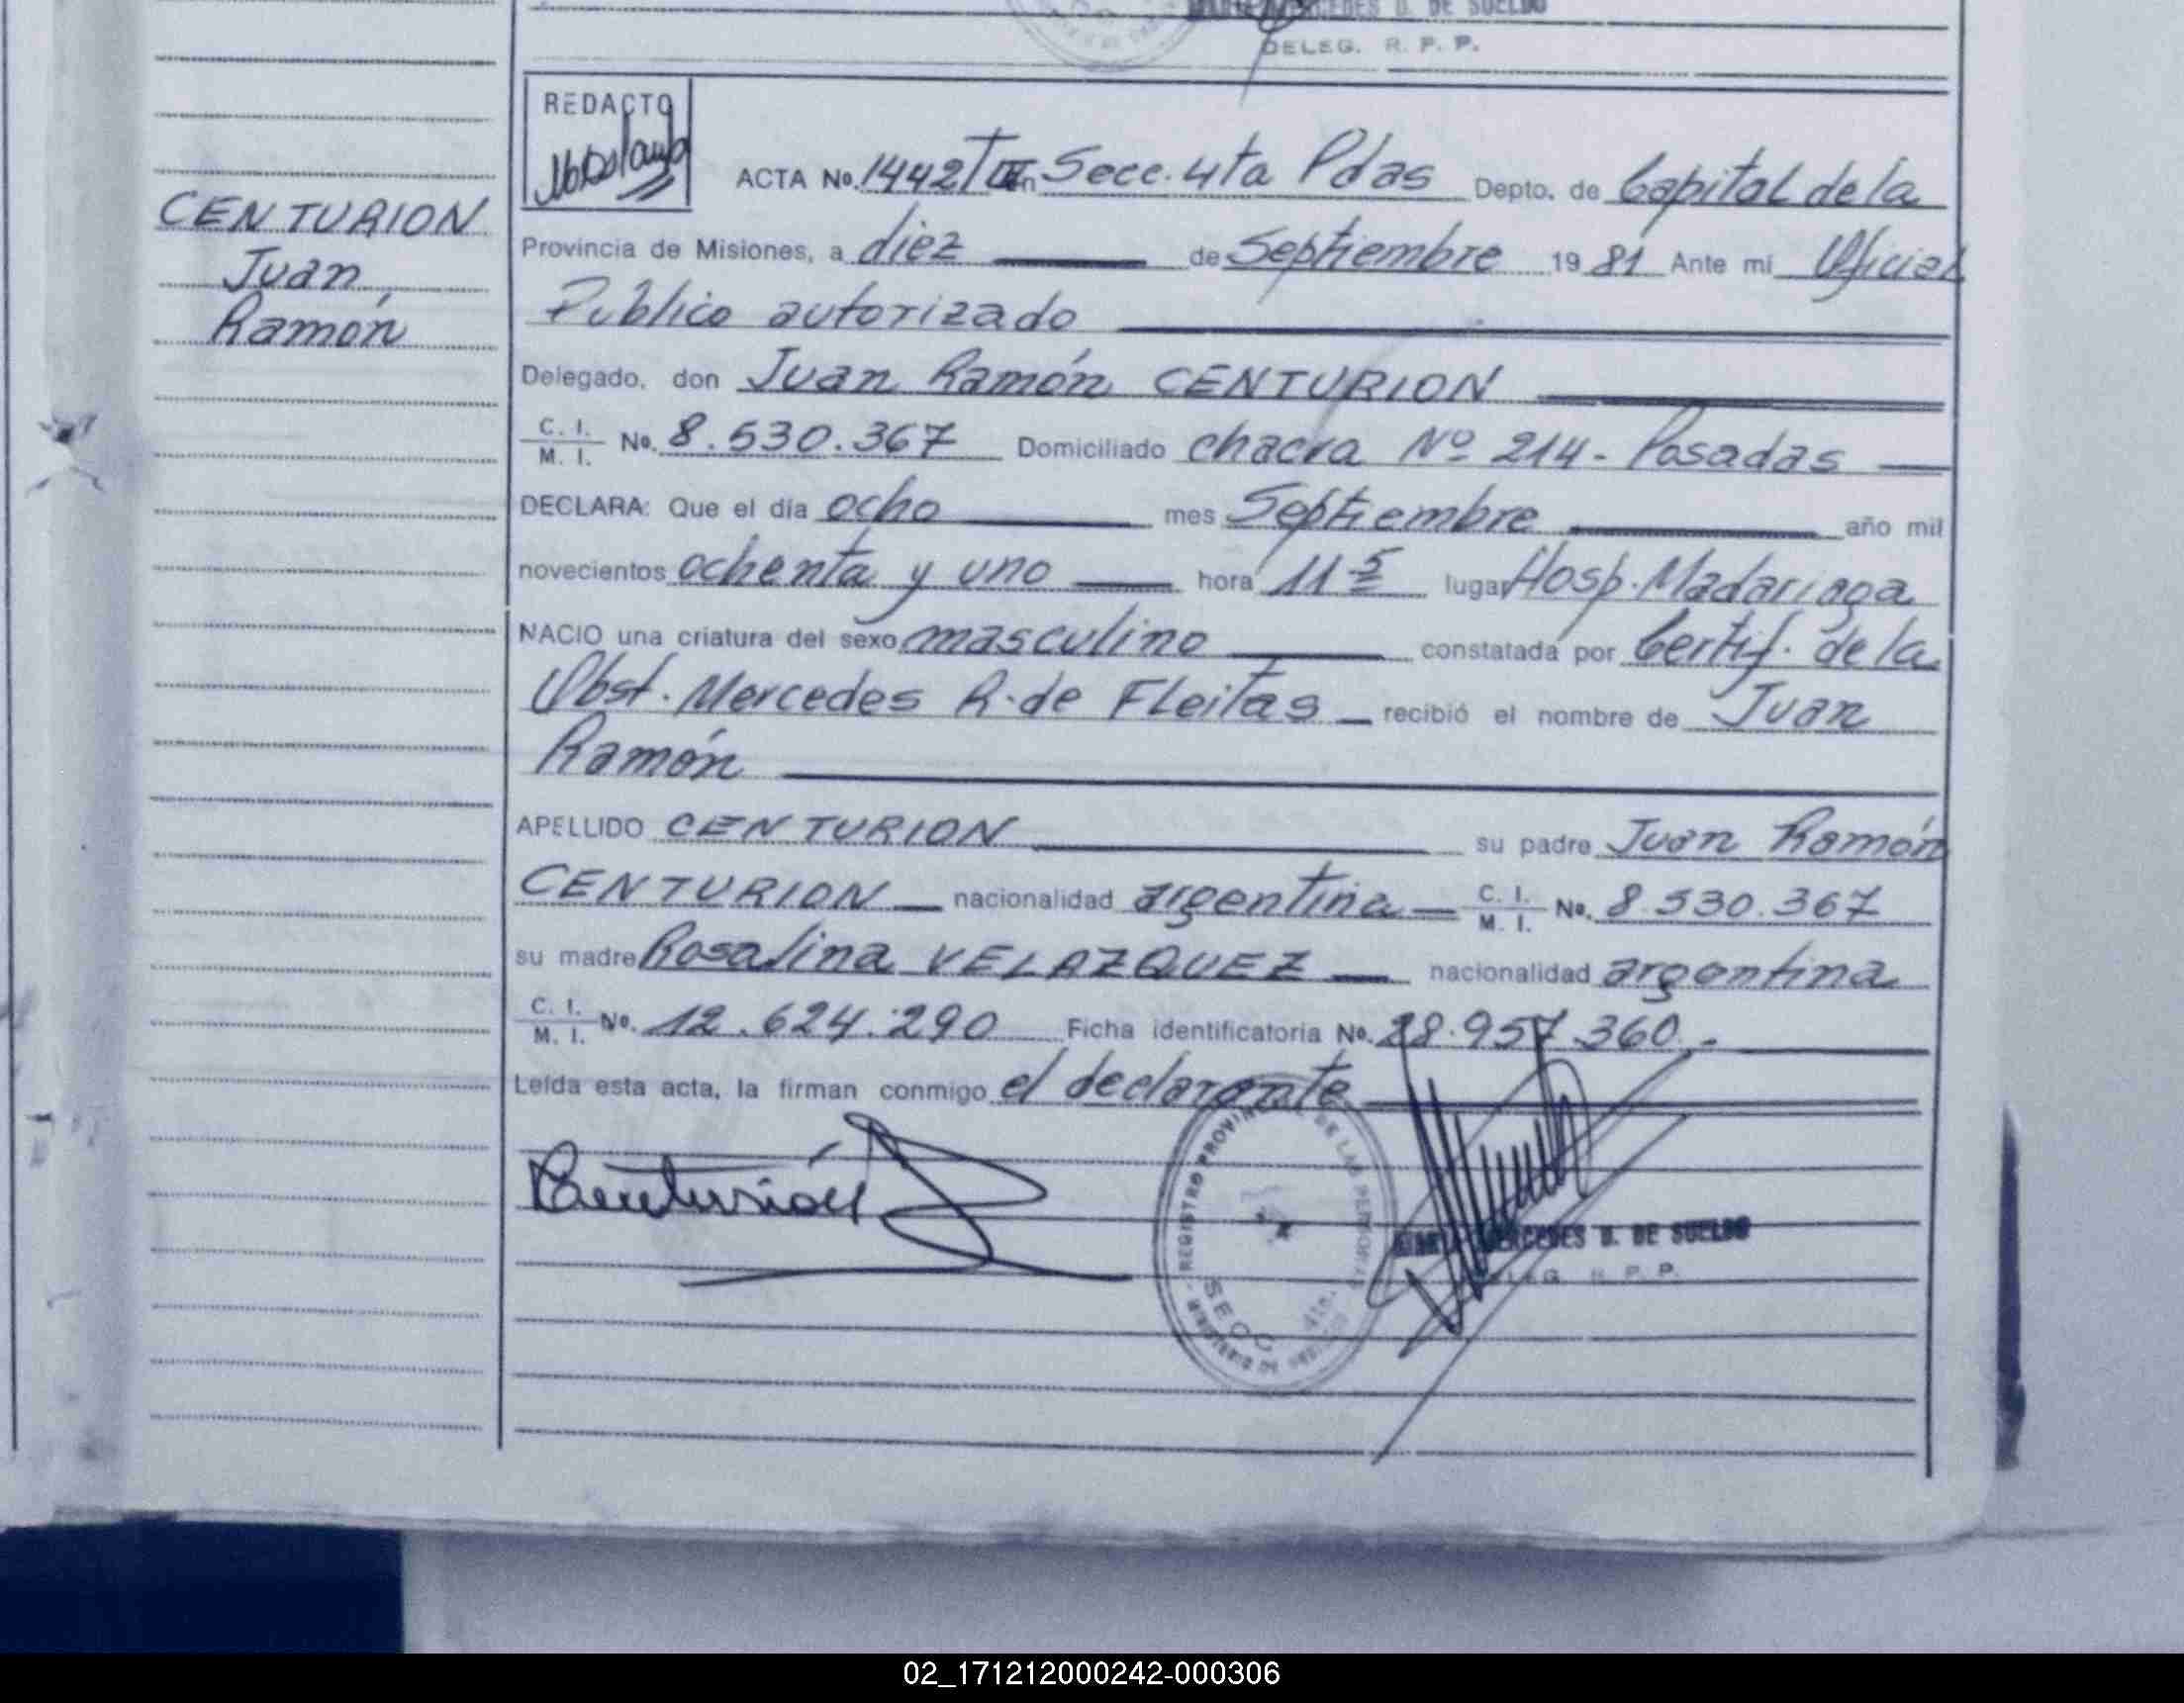 MERCEDES D. DE SUELDO
DELEG. R. P. P.
REDACTO
CENTURION
Juan
Ramón
ACTA No. 1442/T III En Secc. 4ta Pdas Depto. de Capital de la
Provincia de Misiones, a diez de Septiembre 1981 Ante mi Oficial
Publico autorizado
Delegado, don Juan Ramón CENTURION
C. I.
M. I. No. 8.530.367 Domiciliado chacra Nº 214 - Posadas
DECLARA: Que el día ocho mes Septiembre año mil
novecientos ochenta y uno hora 11 5 lugar Hosp. Madariaga
NACIO una criatura del sexo masculino constatada por Certif. de la
Obst. Mercedes R. de Fleitas recibió el nombre de Juan
Ramón
APELLIDO CENTURION su padre Juan Ramón
CENTURION nacionalidad argentina C. I. M. I. No. 8.530.367
su madre Rosalina VELAZQUEZ nacionalidad argentina
C. I.
M. I. No. 12.624.290 Ficha identificatoria No. 28.957.360.-
Leída esta acta, la firman conmigo el declarante
Centurión
REGISTRO PROVINCIAL DE LAS PERSONAS
SECC 4ta.
MERCEDES D. DE SUELDO
DELEG. R. P. P.
02_171212000242-000306